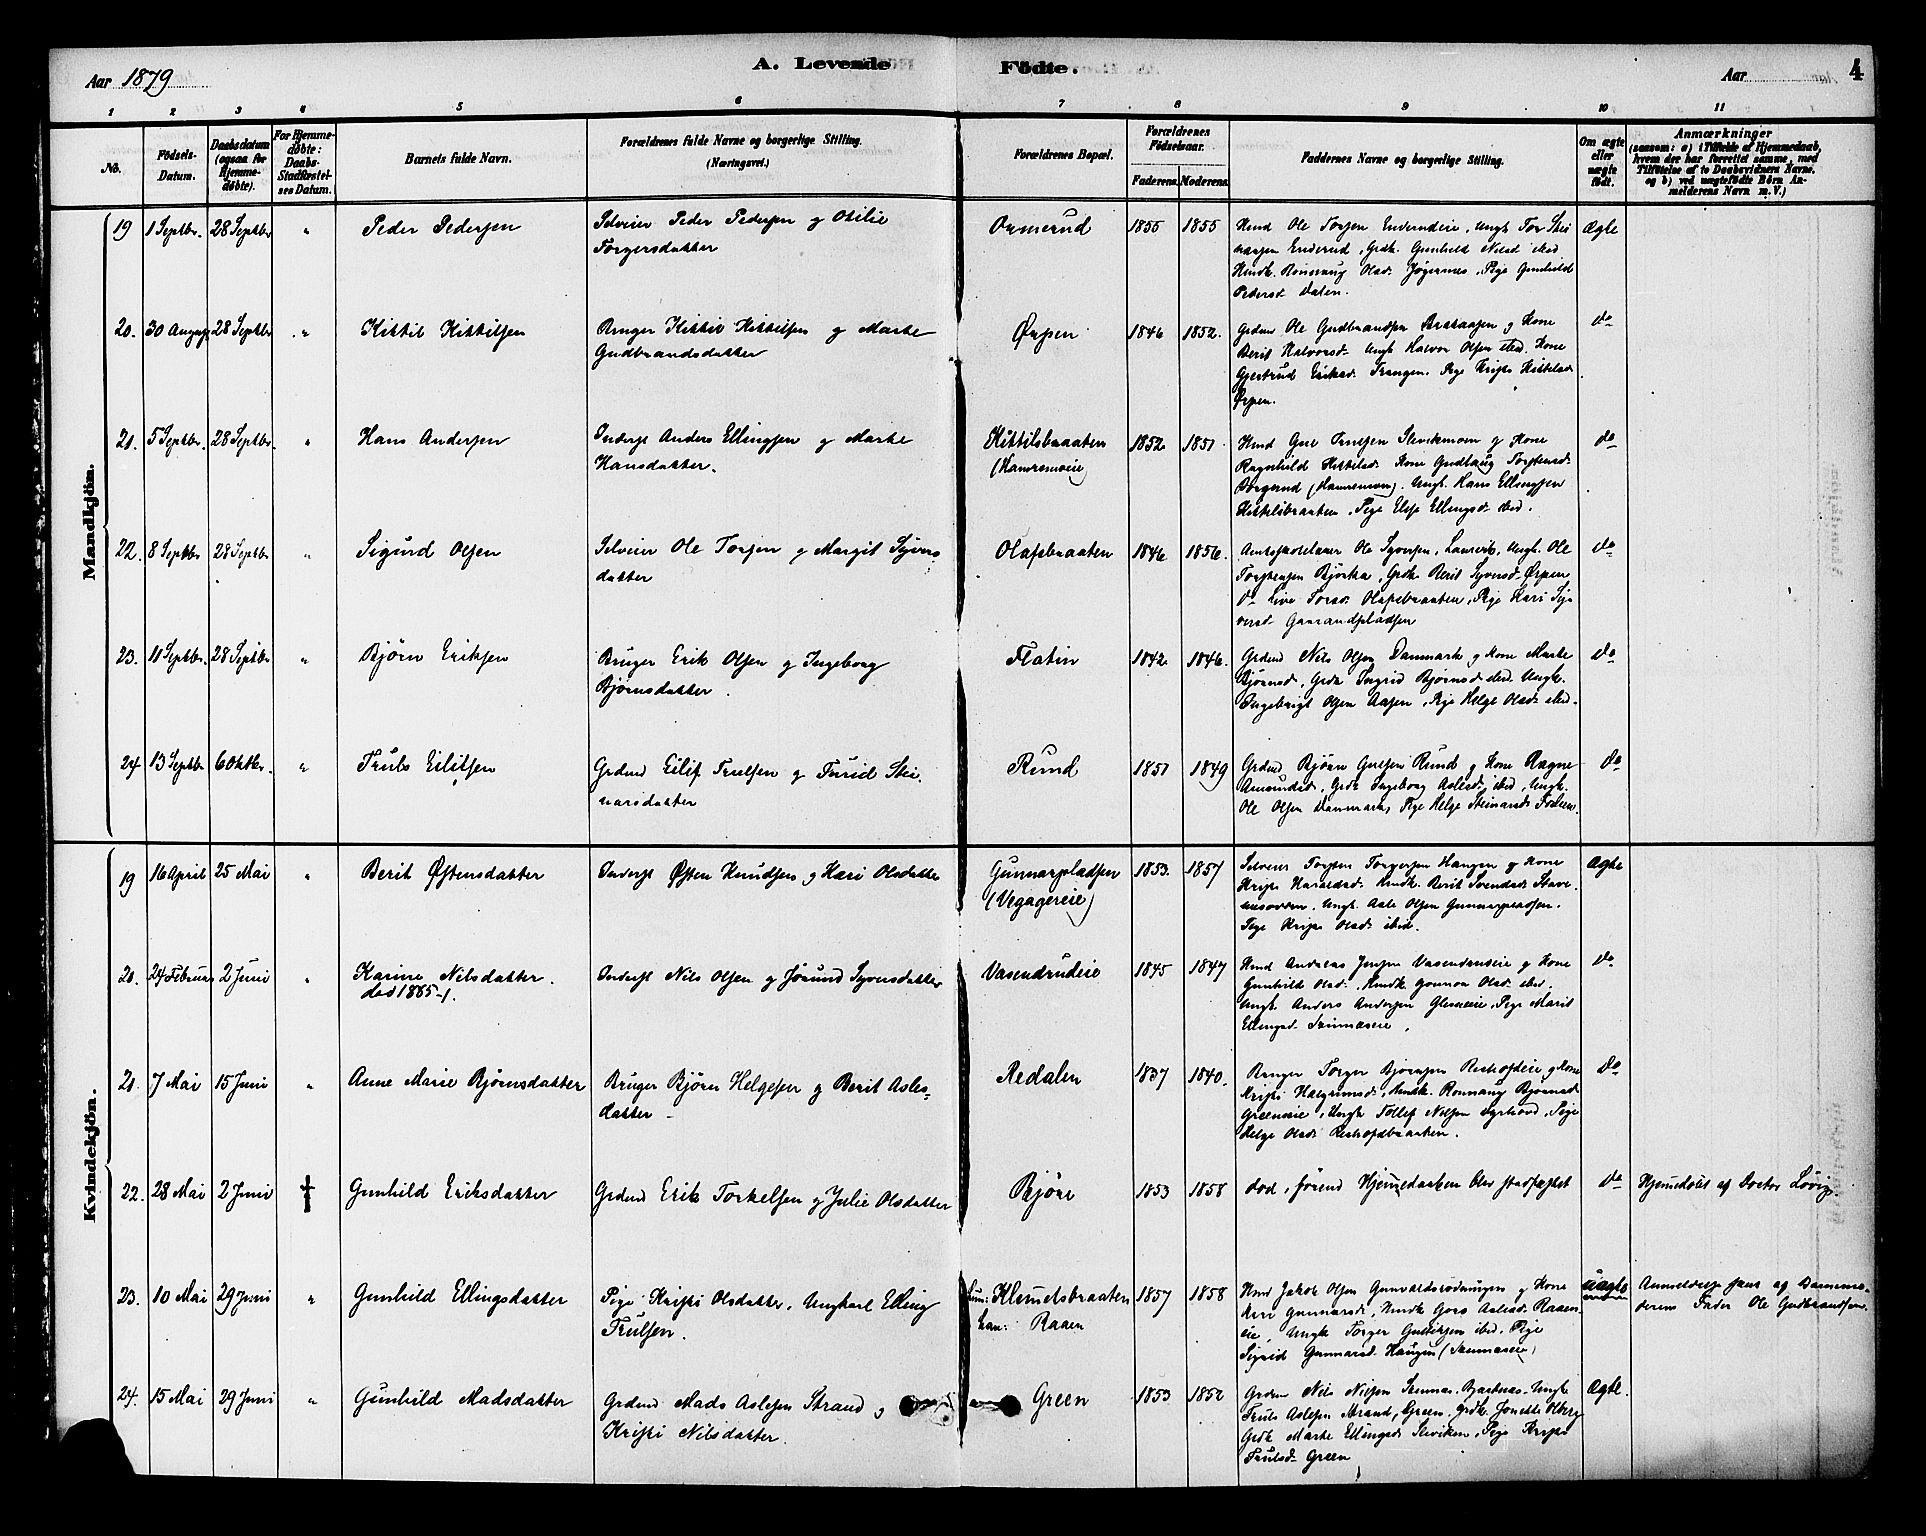 Aar 1879
A. Levende Födte.
Aar
4
1 2 3 4 5 6 7 8 9 10 11
No.
Födsels-Datum.
Daabsdatum (ogsaa for Hjemmedøbte).
For Hjemmedøbte: Daabs-Stadfæstelses Datum.
Barnets fulde Navn.
Forældrenes fulde Navne og borgerlige Stilling. (Næringsvei.)
Forældrenes Bopæl.
Forældrenes Födselsaar.
Faderens. Moderens.
Faddernes Navne og borgerlige Stilling.
Om ægte eller uægte født.
Anmærkninger
(saasom: a) i Tilfælde af Hjemmedaab, hvem der har forrettet samme, med Tilføielse af to Daabsvidners Navne, og b) ved uægtefödte Börn Anmelderens Navn m. V.)
Mandkjön.
19 1 Septbr. 28 Septbr " Peder Pedersen
Selveier Peder Pedersen g Otilie
Torgersdatter
Ormerud 1855 1855
Hmd Ole Torsen Enderudeie, Ungk Tor Steinarsen Enderud, Grdk. Gunhild Nilsd ibid
Hmdk. Rønnaug Olsd. Jøgernes, Pige Gunhild
Pedersd Dalen.
Ægte
20. 30 August 28 Septbr " Kittil Kittilsen
Bruger Kittil Kittilsen g Marte
Gudbrandsdatter
Ørpen 1846 1852.
Grdmd Ole Gudbrandsen Braskaasen g Kone
Berit Halvorsd. Ungk Halvor Olsen ibid. Kone
Gjertrud Eriksd. Trangen. Pige Kristi Kittelsd
Ørpen.
do
21. 5 Septbr. 28 Septbr. " Hans Andersen
Inderst Anders Ellingsen g Marte
Hansdatter.
Kittilsbraaten
(Hamremoeie)
1852 1851.
Hmd Gul Truelsen Slevikmoen g Kone
Ragnhild Kittelsd. Kone Gudbiaug Torstensd.
Borgerud (Hamremoen). Ungk. Hans Ellingsen
Kittelsbraaten, Pige Else Ellingsd ibid.
do
22. 8 Septbr 28 Septbr " Sigurd Olsen
Selveier Ole Torsen g Margit Syversdatter
Olafsbraaten 1846 1856.
Amtsskolelærer Ole Syversen, Laurvik, Ungk. Ole
Torstensen Bjørka, Grdk Berit Syversd Ørpen
do Live Torsd. Olafsbraaten, Pige Kari Syversd Gaarandpladsen
do
23. 11 Septbr. 28 Septbr " Bjørn Eriksen
Bruger Erik Olsen g Ingeborg
Bjørnsdatter.
Flatin 1842 1846.
Grdmd Nils Olsen Danmark g Kone Marte
Bjørnsd, Grdk Ingrid Bjørnsd ibid. Ungk.
Ingebrigt Olsen Aasen, Pige Helge Olsd. ibid.
do
24 13 Septbr 6 Oktbr. " Truls Eilifsen
Grdmd Eilif Trulsen g Turid Steinarsdatter
Rund 1851 1849
Grdmd Bjørn Gulsen Rund g Kone Ragne
Amundsd, Grdk Ingeborg Aslesd. ibid, Ungk.
Ole Olsen Danmark, Pige Helge Steinarsd.
do
Kvindekjön.
19 16 April 25 Mai " Berit Østensdatter
Inderst Østen Knudsen g Kari Olsdatter
Gunnarpladsen
(Vegagereie)
1853. 1857
Selveier Torsten Torgersen Haugen g Kone
Kristi Haraldsd. Hmdk. Berit Svendsd.
Ungk. Asle Olsen Gunnarpladsen.
Pige Kristi Olsd. ibid.
Ægte
20. 24 Februar 2 Juni " Karine Nilsdatter.
død 1885-1.
Inderst Nils Olsen g Jørund Syversdatter
Vasendrudeie 1845 1847
Hmd Andreas Jensen Vasendrudeie g Kone
Gunhild Olsd., Hmdk Gonnor Olsd ibid.
Ungk Anders Andersen Glesneeie, Pige Marit
Ellingsd.
do
21. 7 Mai 15 Juni " Anne Marie Bjørnsdatter
Bruger Bjørn Helgesen g Berit Aslesdatter
Redalen 1837 1840.
Bruger Torger Bjørnsen g Kone
Kristi Halgrimsd, Hmdk. Rønnaug Bjørnsd
Greeneeie, Ungk Tollef Nilsen, Pige
Helge Olsd.
do
22. 28 Mai 2 Juni † Gunhild Eriksdatter
Grdmd Erik Torkelsen g Julie Olsdatter
Bjøre 1853 1858
død, førend Hjemmedaaben blev stadfæstet
do
Hjemmedøbt af Doctor Lövig.
23. 10 Mai 29 Juni " Gunhild Ellingsdatter
Pige Kristi Olsdatter, Ungkarl Elling
Trulsen.
hun: Klemetsbraaten
han: Raaen
1857 1858
Hmd Jakob Olsen g Kone
Kari Gunnarsd, Hmdk Goro Aslesd. Raaeneie, Ungk Torger Gulliksen ibid. Pige
Sigrid Gunnarsd. Haugen
uægte
Anmeldelse fra Barnemoderens Fader Ole Gudbrandsen.
24. 15 Mai 29 Juni " Gunhild Madsdatter
Grdmd Mads Aslesen Strand g
Kristi Nilsdatter.
Green 1853 1852
Grdmd Nils Nilsen Ungk
Truls Aslesen Strand, Green, grdk. Jonette Olberg
Grdk Marte Ellingsd. Sleviken, Pige Kristi
Trulsd. Green
Ægte.